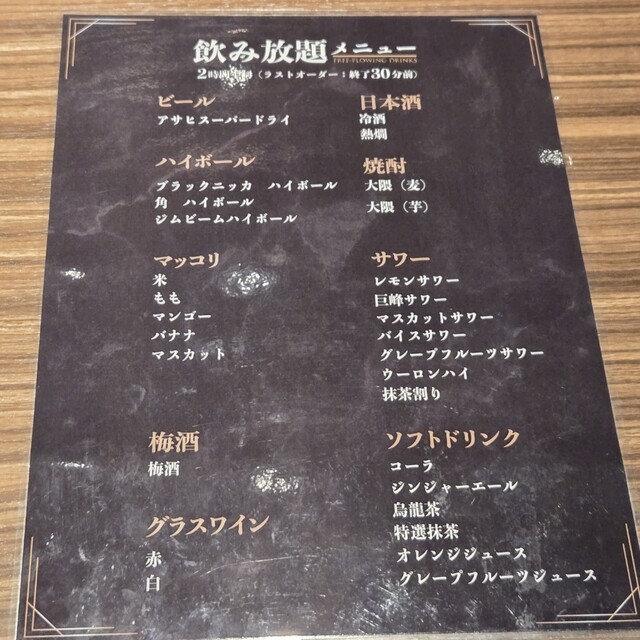 飲み放題メニュー
FREE-FLOWING DRINKS
2時間制（ラストオーダー：終了30分前）
ビール
アサヒスーパードライ
ハイボール
ブラックニッカ　ハイボール
角　ハイボール
ジムビームハイボール
マッコリ
米
もも
マンゴー
バナナ
マスカット
梅酒
梅酒
グラスワイン
赤
白
日本酒
冷酒
熱燗
焼酎
大隈（麦）
大隈（芋）
サワー
レモンサワー
巨峰サワー
マスカットサワー
バイスサワー
グレープフルーツサワー
ウーロンハイ
抹茶割り
ソフトドリンク
コーラ
ジンジャーエール
烏龍茶
特選抹茶
オレンジジュース
グレープフルーツジュース